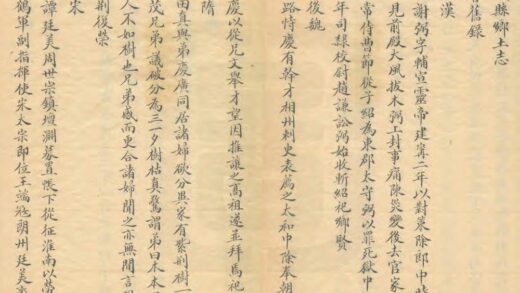 縣鄉土志
舊錄
漢
謝弼字輔宣靈帝建寧二年以對策除郎中時
見前殿大風拔木弼上封事痛陳災變後去官家
常侍曹節從子紹為東郡太守弼以罪死獄中
年司隸校尉趙謙訟弼始收斬紹祀鄉賢
後魏
路恃慶有幹才相州刺史表為之太和中除奉朝
慶以從兄文舉才望因推讓之高祖遂並拜焉祀
隋
田真與弟慶廣同居諸婦欲分異家有紫荊樹一
茂兄弟議破分為三一夕樹枯真驚謂弟曰木本
人不如樹也兄弟感而更合諸婦聞之亦無間言
荊復榮
宋
譚廷美周世宗鎮壇淵募置帳下從征淮南以勞
鶴軍副指揮使宋太宗即位王端冠朗州廷美